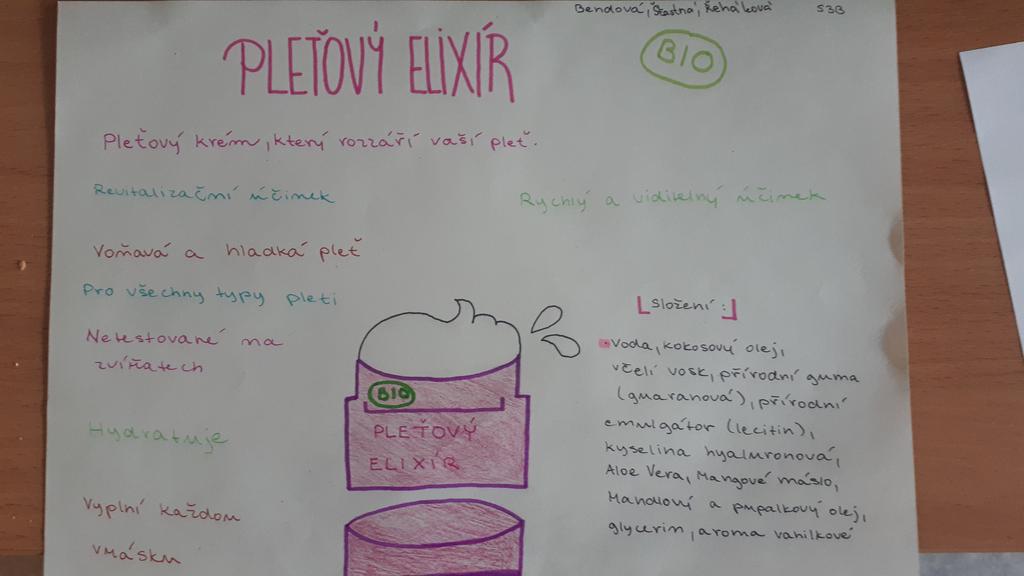 Bendová, Šťastná, Řeháková S3B
PLEŤOVÝ ELIXÍR
BIO
Pleťový krém, který rozzáří vaší pleť.
Revitalizační účinek
Rychlý a viditelný účinek
Voňavá a hladká pleť
Pro všechny typy pleti
Netestované na
zvířatech
Hydratuje
Vyplní každou
vrásku
BIO
PLEŤOVÝ
ELIXÍR
Složení:
Voda, kokosový olej,
včelí vosk, přírodní guma
(guaranová), přírodní
emulgátor (lecitin),
kyselina hyaluronová,
Aloe Vera, Mangové máslo,
Mandlový a pupalkový olej,
glycerin, aroma vanilkové